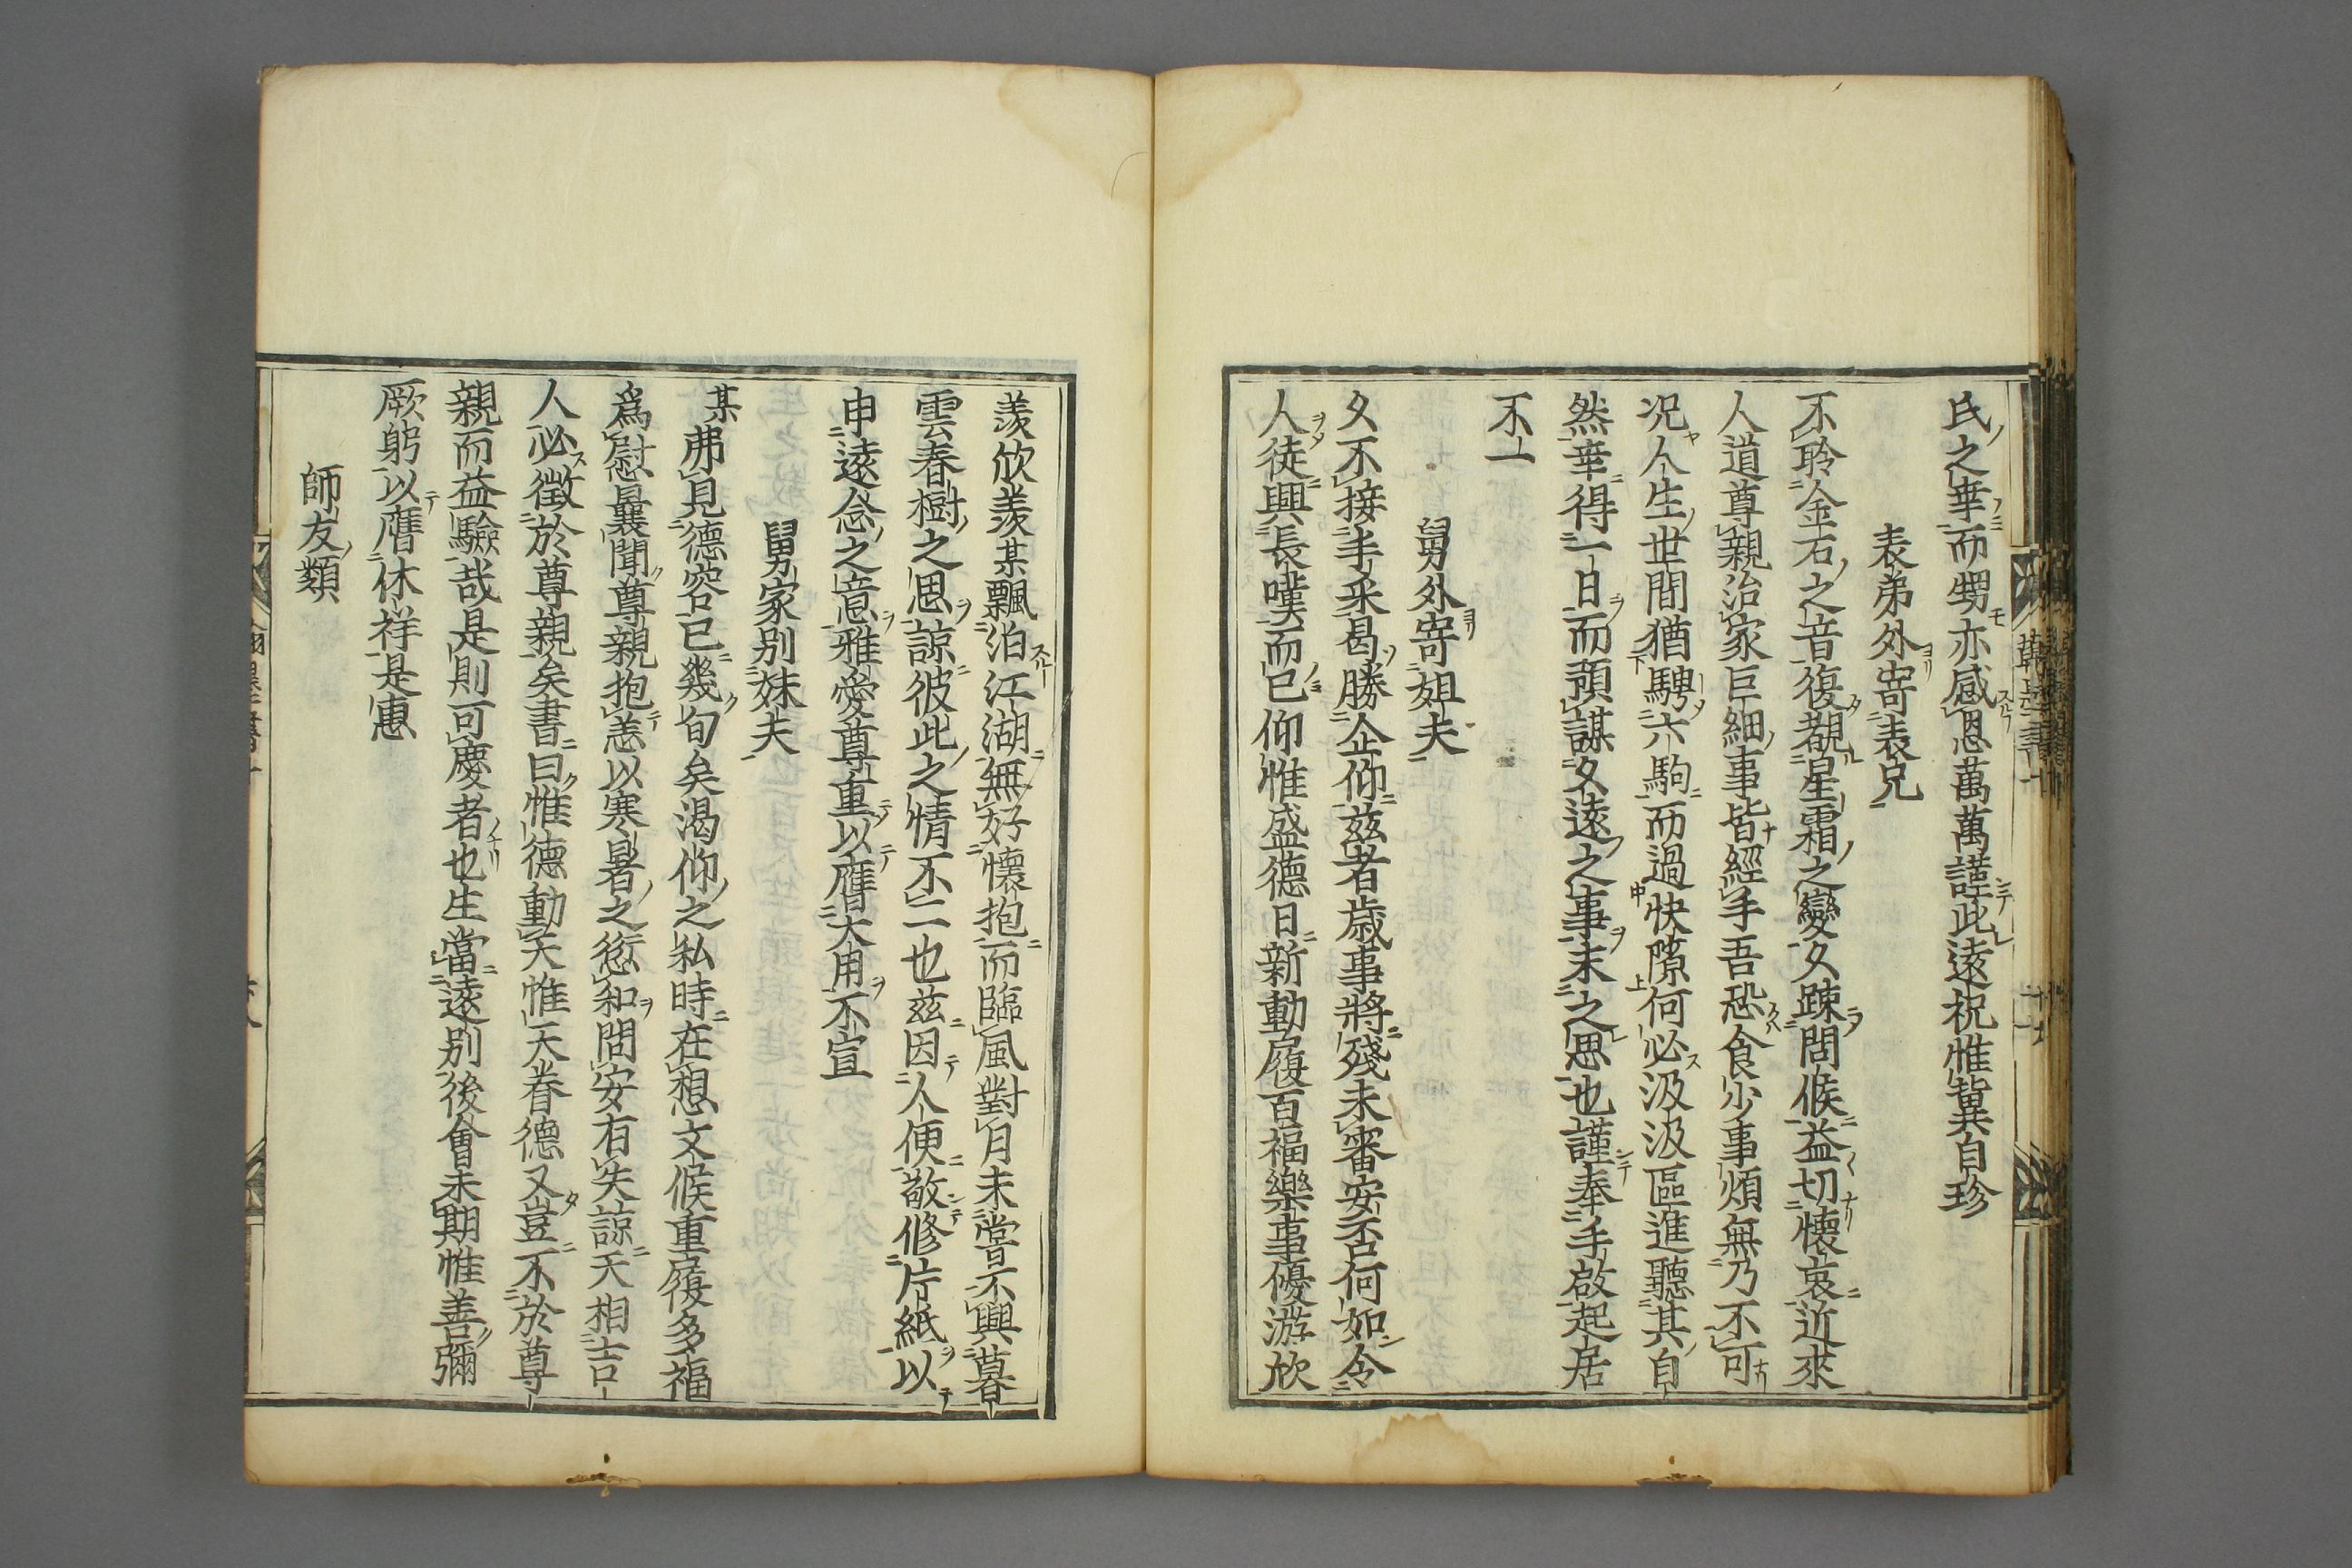 氏之幸而甥亦感恩萬萬謹此遠祝惟冀自珍
表弟外寄表兄
不聆金石之音復覩星霜之變久踈問候益切懷哀近來
人道尊親治家巨細事皆經手吾恐食少事煩無乃不可
况人生世間猶騁六駒而過快隙何必汲汲區進聽其自
然幸得一日而預謀久遠之事未之思也謹奉手啟起居
不一
舅外寄姐夫
久不接手采曷勝企仰茲者歲事將殘未審安否何如令
人徒興長嘆而已仰惟盛德日新動履百福樂事優游欣
羨欣羨某飄泊江湖無好懷抱而臨風對月未嘗不興暮
雲春樹之思諒彼此之情不二也茲因人便敬修片紙以
申遠念之意雅愛尊重以膺大用不宣
舅家别妹夫
某弗見德容已幾旬矣渴仰之私時在想文候重履多福
爲慰曩聞尊親抱恙以寒暑之愆和問安有失諒天相吉
人必徵於尊親矣書曰惟德動天惟天眷德又豈不於尊
親而益驗哉是則可慶者也生當遠别後會未期惟善彌
厥躬以膺休祥是惠
師友類